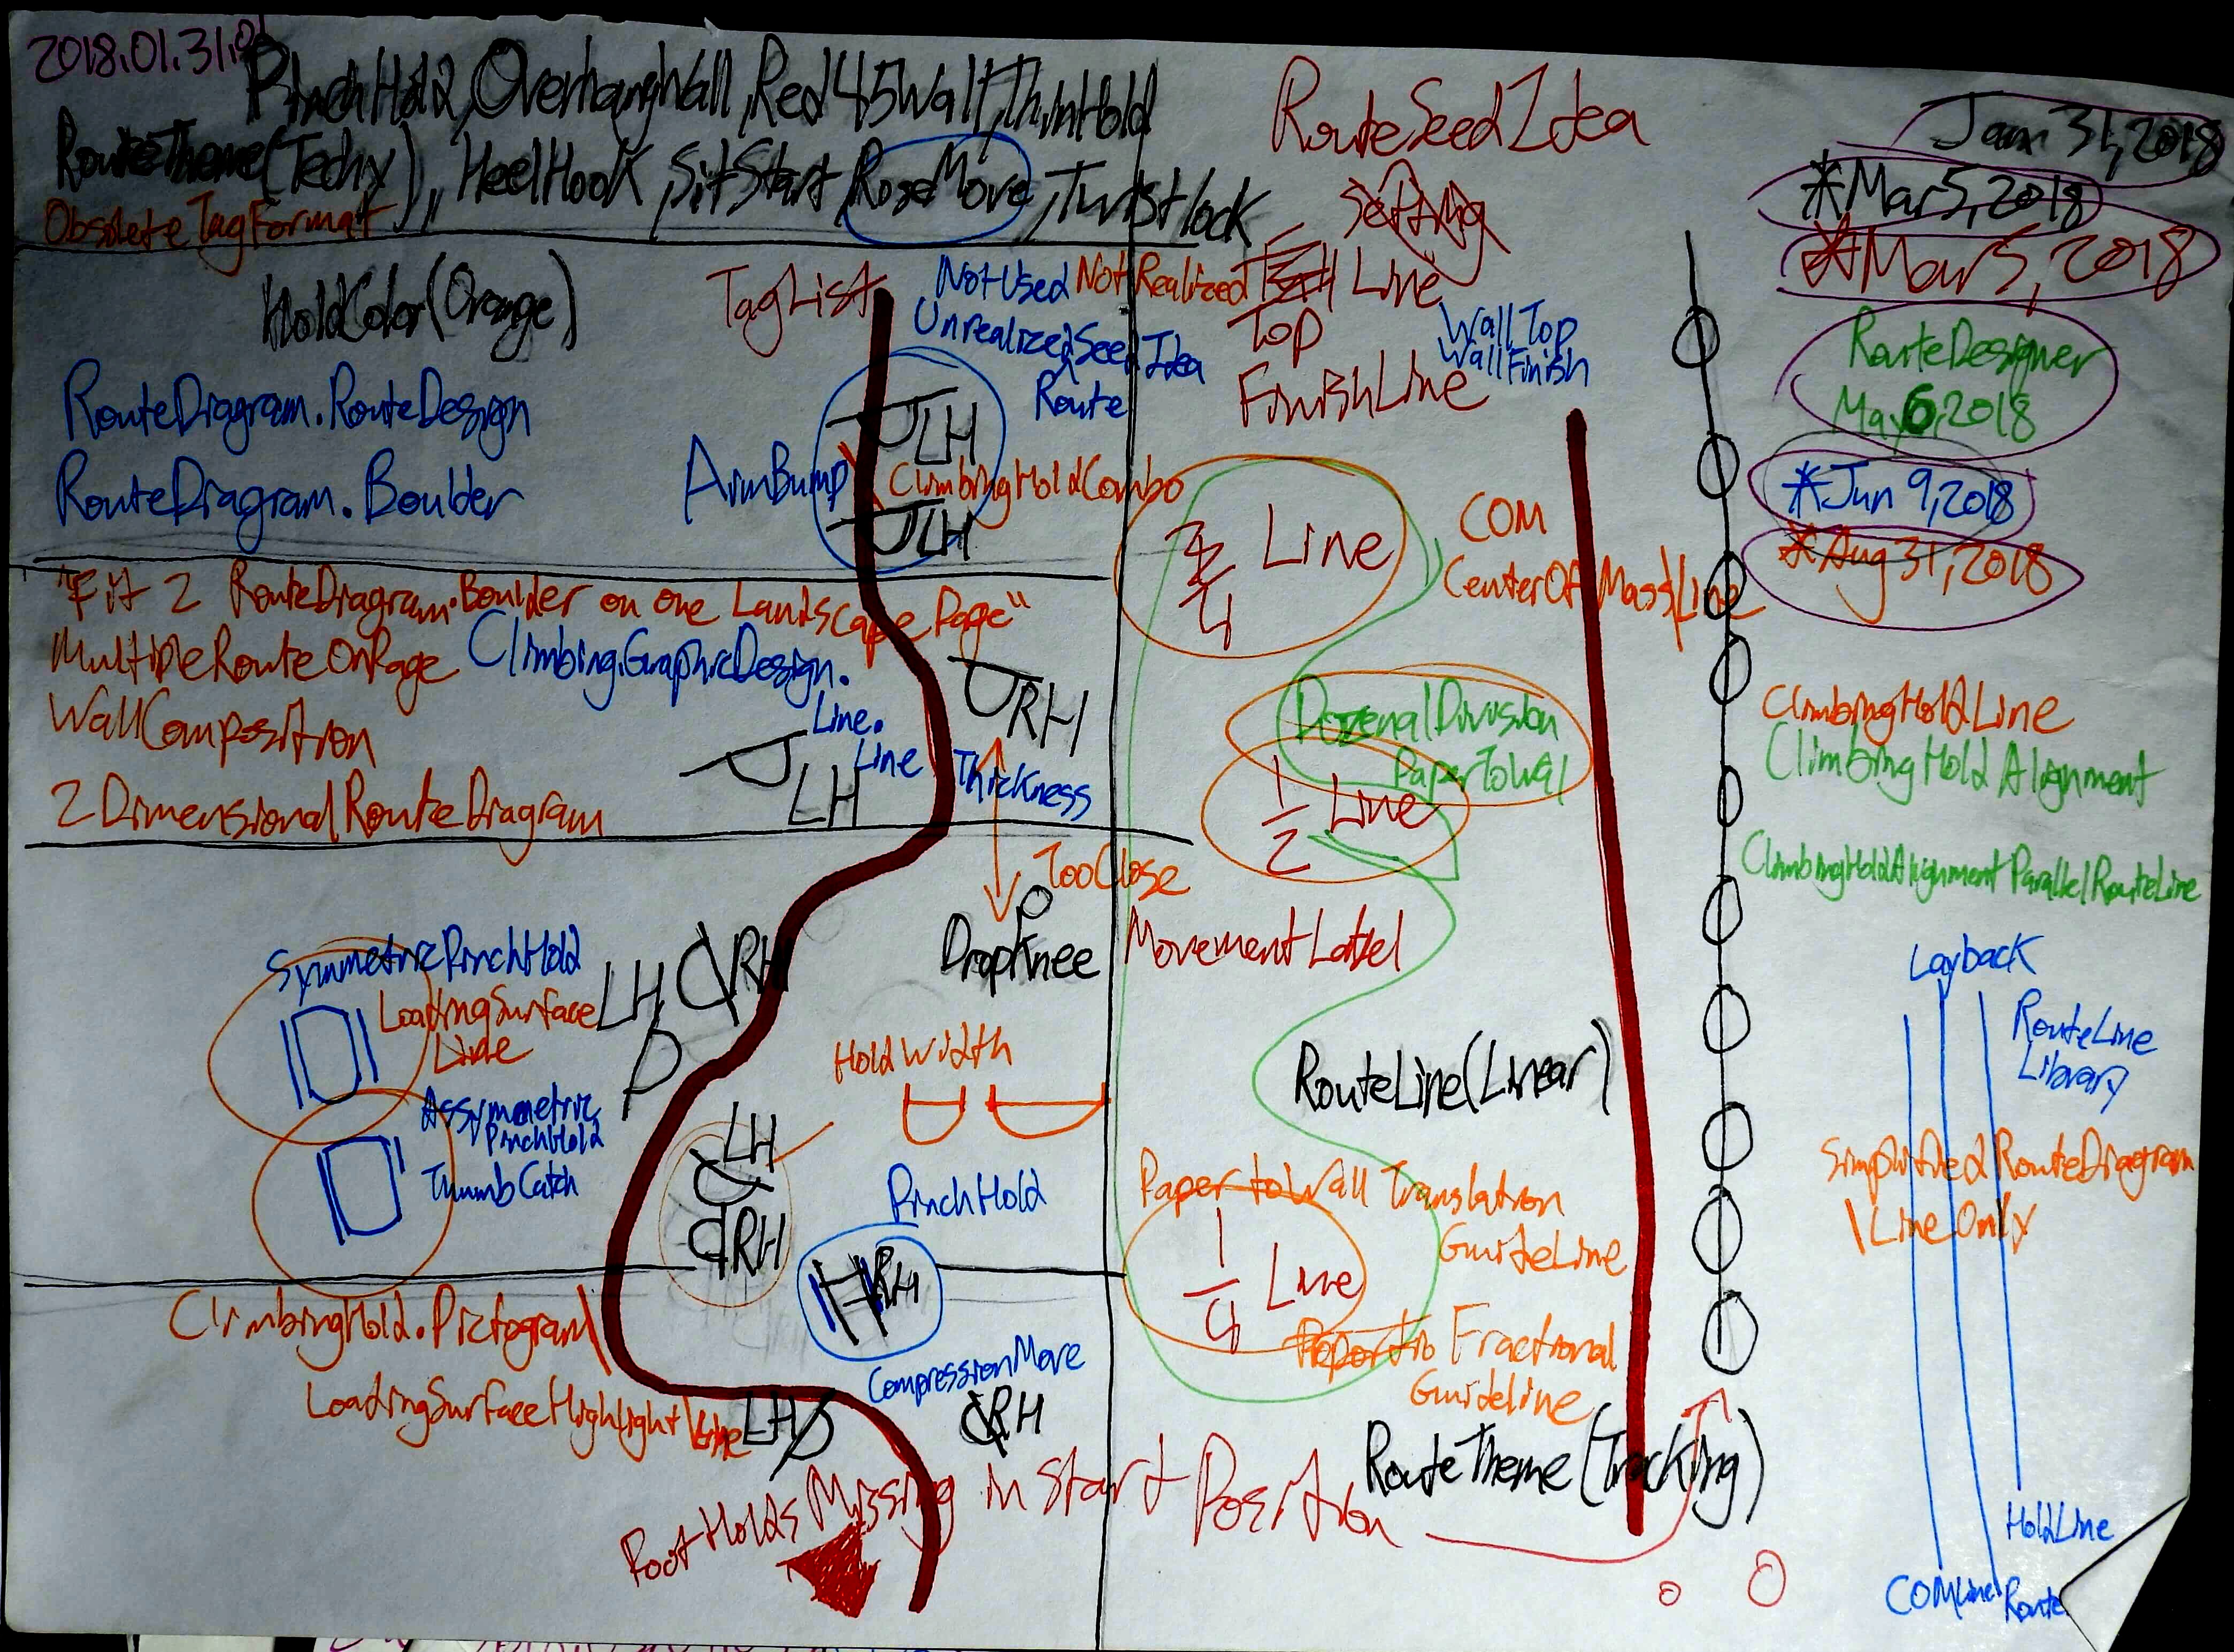 2018.01.31.01
PinchHold, OverhangWall, Red45Wall, ThinHold
RouteTheme(Techy), HeelHook, SitStart, RoseMove, Twistlock
ObsoleteTagFormat
HoldColor(Orange)
TagList
NotUsed NotRealized
UnrealizedSeedIdea
Route
RouteDiagram.RouteDesign
RouteDiagram.Boulder
LH
ArmBump
ClimbingHoldCombo
LH
"Fit 2 RouteDiagram.Boulder on one Landscape Page"
MultipleRouteOnPage
Climbing.GraphicDesign.
Line.
Line
Thickness
WallComposition
2DimensionalRouteDiagram
RH
LH
TooClose
DropKnee
MovementLabel
SymmetricPinchHold
LoadingSurface
Line
LH
RH
HoldWidth
Assymetric
PinchHold
ThumbCatch
LH
RH
PinchHold
RH
ClimbingHold.Pictogram
LoadingSurfaceHighlight
Line
CompressionMove
LH
RH
FootHoldsMissing in Start Position
RouteSeedIdea
Setting
Line
Top
FinishLine
WallTop
WallFinish
3/4 Line
COM
CenterOfMass Line
DozenalDivision
PaperToWall
1/2 Line
RouteLine(Linear)
Paper to Wall Translation
GuideLine
1/4 Line
Fractional
Guideline
RouteTheme(Tracking)
Jan 31, 2018
*Mar5, 2018
*Mar5, 2018
RouteDesigner
May6, 2018
*Jun 9, 2018
*Aug 31, 2018
ClimbingHoldLine
ClimbingHoldAlignment
ClimbingHoldAlignmentParallelRouteLine
Layback
RouteLine
Library
SimplifiedRouteDiagram
LineOnly
HoldLine
COMLine
Route